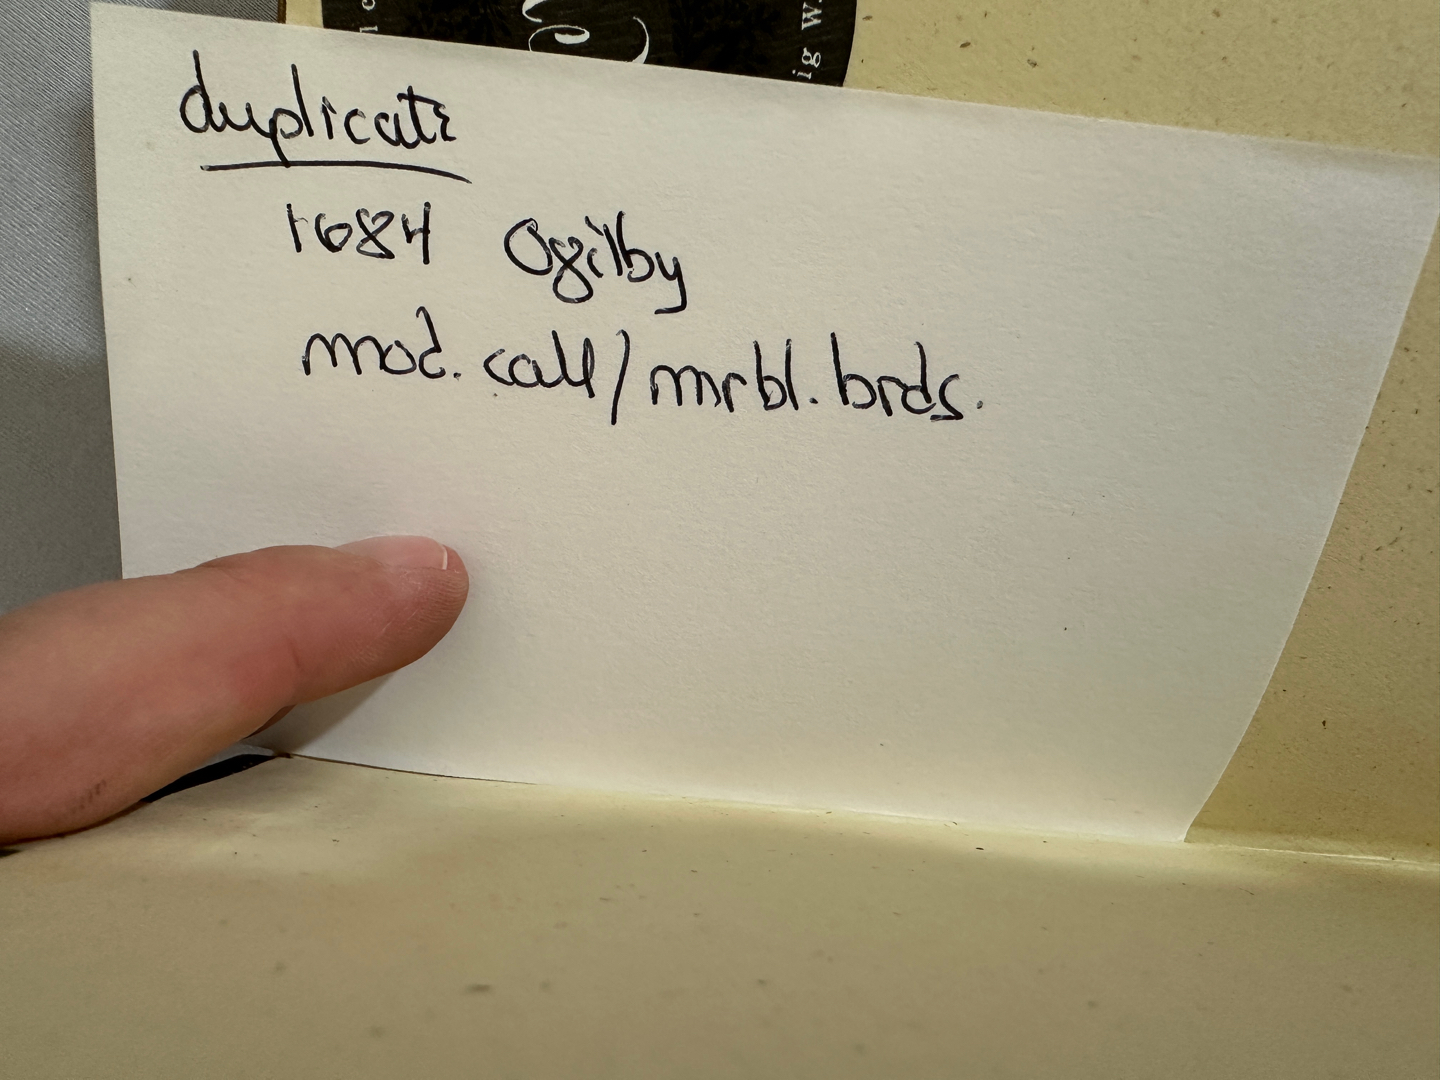 duplicate
1684 Ogilby
mod. calf/mrbl. brds.
ig W.